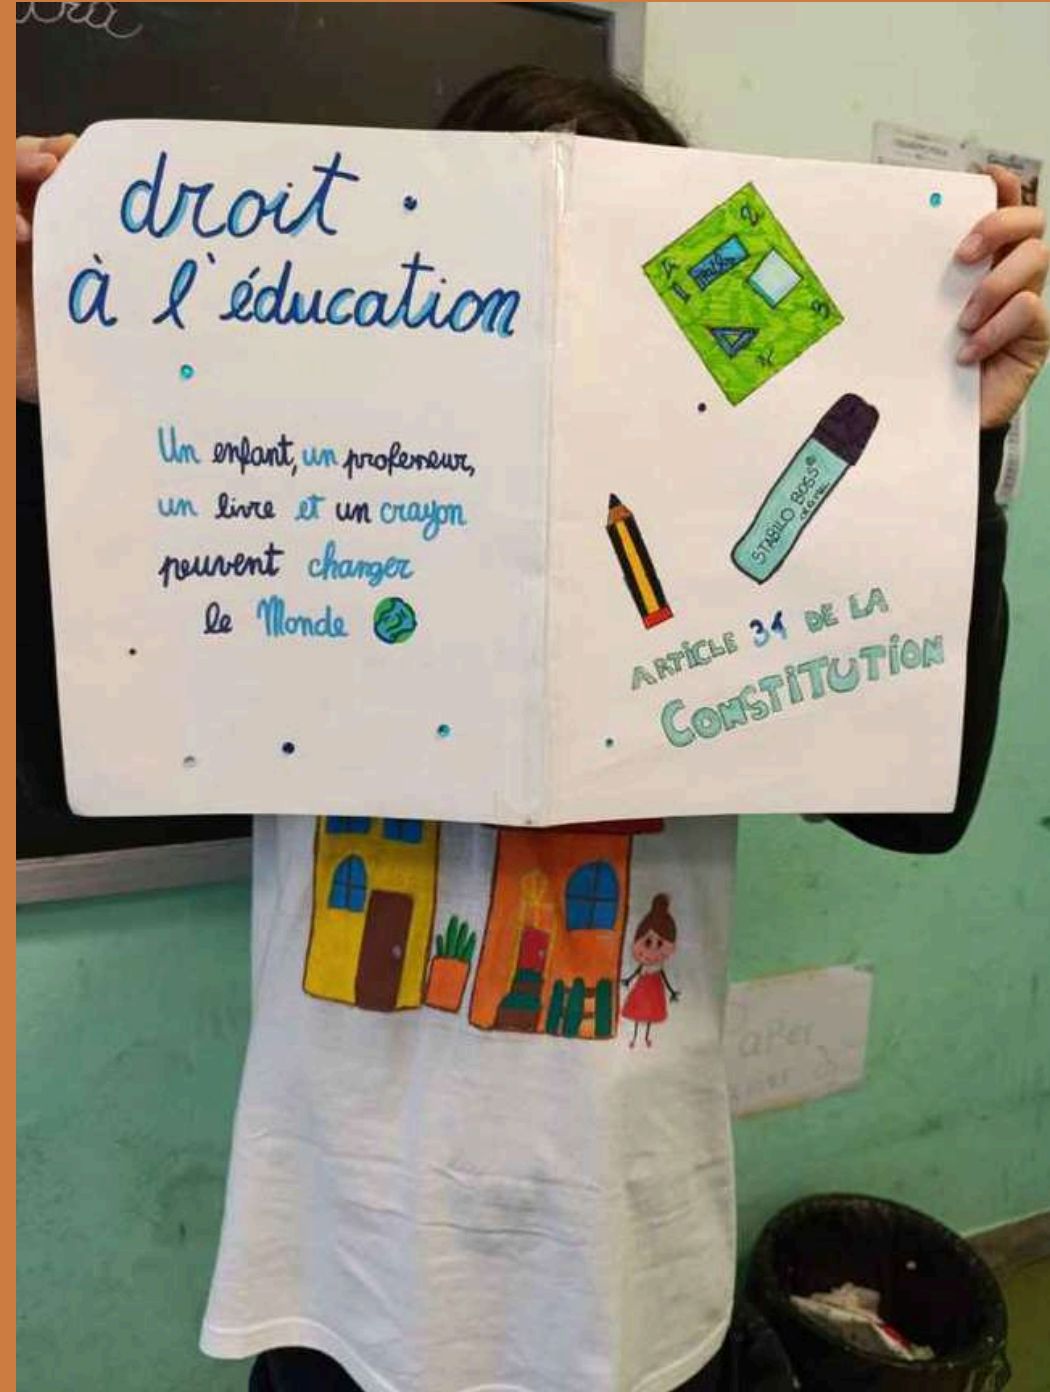 droit
à l'éducation
Un enfant, un professeur,
un livre et un crayon
peuvent changer
le Monde
2
3
STABILO BOSS®
ARTICLE 34 DE LA
CONSTITUTION